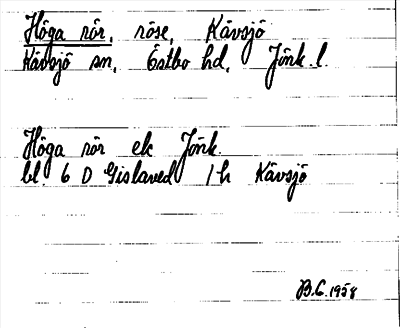 Höga rör, röse, Kävsjö
Kävsjö sn, Östbo hd, Jönk. l.
Höga rör ek Jönk.
bl. 6 D Gislaved 1 h Kävsjö
B.C. 1958